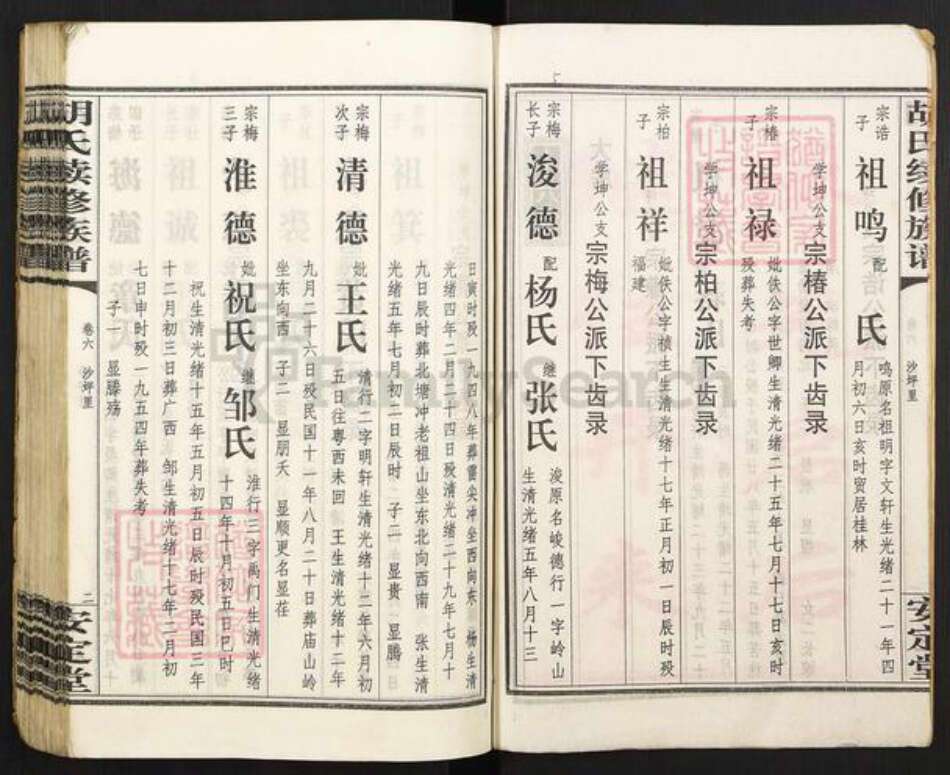 胡氏续修族谱
沙坪里
安定堂
宗诰
子
祖鸣
配
氏
鸣原名祖明字文轩生光绪二十一年四
月初六日亥时贸居桂林
学坤公支宗椿公派下齿录
宗椿
子
祖禄
妣佚公字世卿生清光绪二十五年七月十七日亥时
殁葬失考
学坤公支宗柏公派下齿录
宗柏
子
祖祥
妣佚公字桢生生清光绪十七年正月初一日辰时殁
福建
学坤公支宗梅公派下齿录
宗梅
长子
浚德
配
杨氏
继
张氏
浚原名峻德行一字岭山
生清光绪五年八月十三
日寅时殁一九四八年葬雷尖冲坐西向东 杨生清
光绪四年二月二十四日殁清光绪二十九年七月十
九日辰时葬北塘冲老祖山坐东北向西南 张生清
光绪五年七月初二日辰时 子二 显贵 显腾
宗梅
次子
清德
妣
王氏
清行二字明轩生清光绪十二年六月初
五日往粤西未回 王生清光绪十二年
九月二十六日殁民国十一年八月二十日葬庙山岭
坐东向西 子二 显朋夭 显顺更名显荏
宗梅
三子
淮德
妣
祝氏
继
邹氏
淮行三字禹门生清光绪
十四年十月初五日巳时
祝生清光绪十五年五月初五日辰时殁民国三年
十二月初三日葬广西 邹生清光绪十七年二月初
七日申时殁一九五四年葬失考
子一 显腾殇
胡氏续修族谱
卷六
沙坪里
二
安定堂
FamilySearch